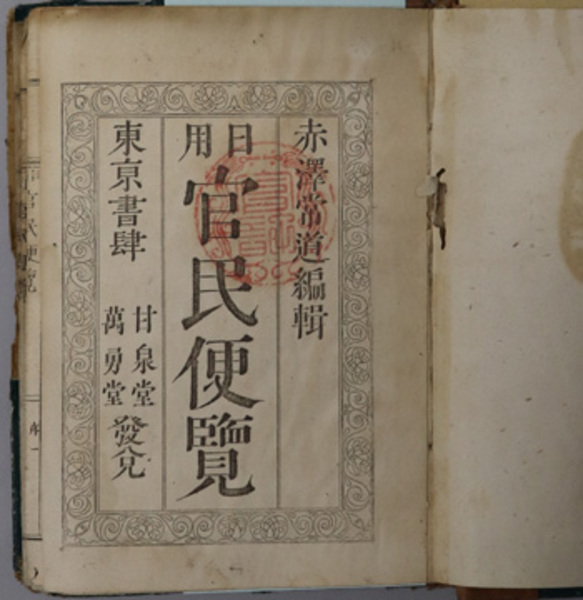 赤澤常道編輯
日用
官民便覽
東亰書肆
甘泉堂
萬勇堂
發兌
官民便覽